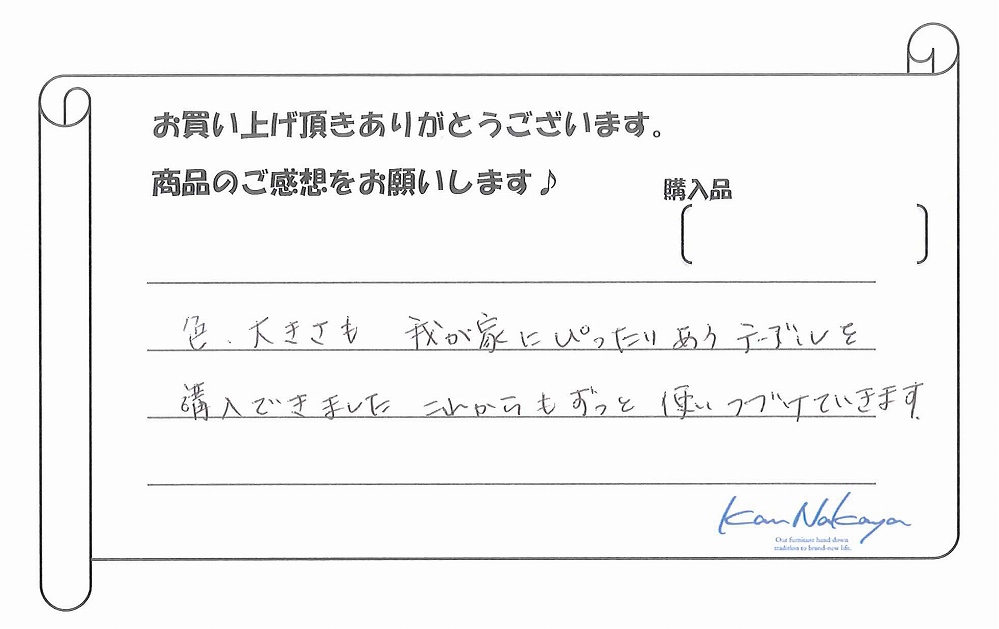 お買い上げ頂きありがとうございます。
商品のご感想をお願いします♪
購入品
色、大きさも 我が家にぴったりあう テーブルを
購入できました これからもずっと 使いつづけていきます
Kan Nakaya
Our furniture hand down
tradition to brand-new life.